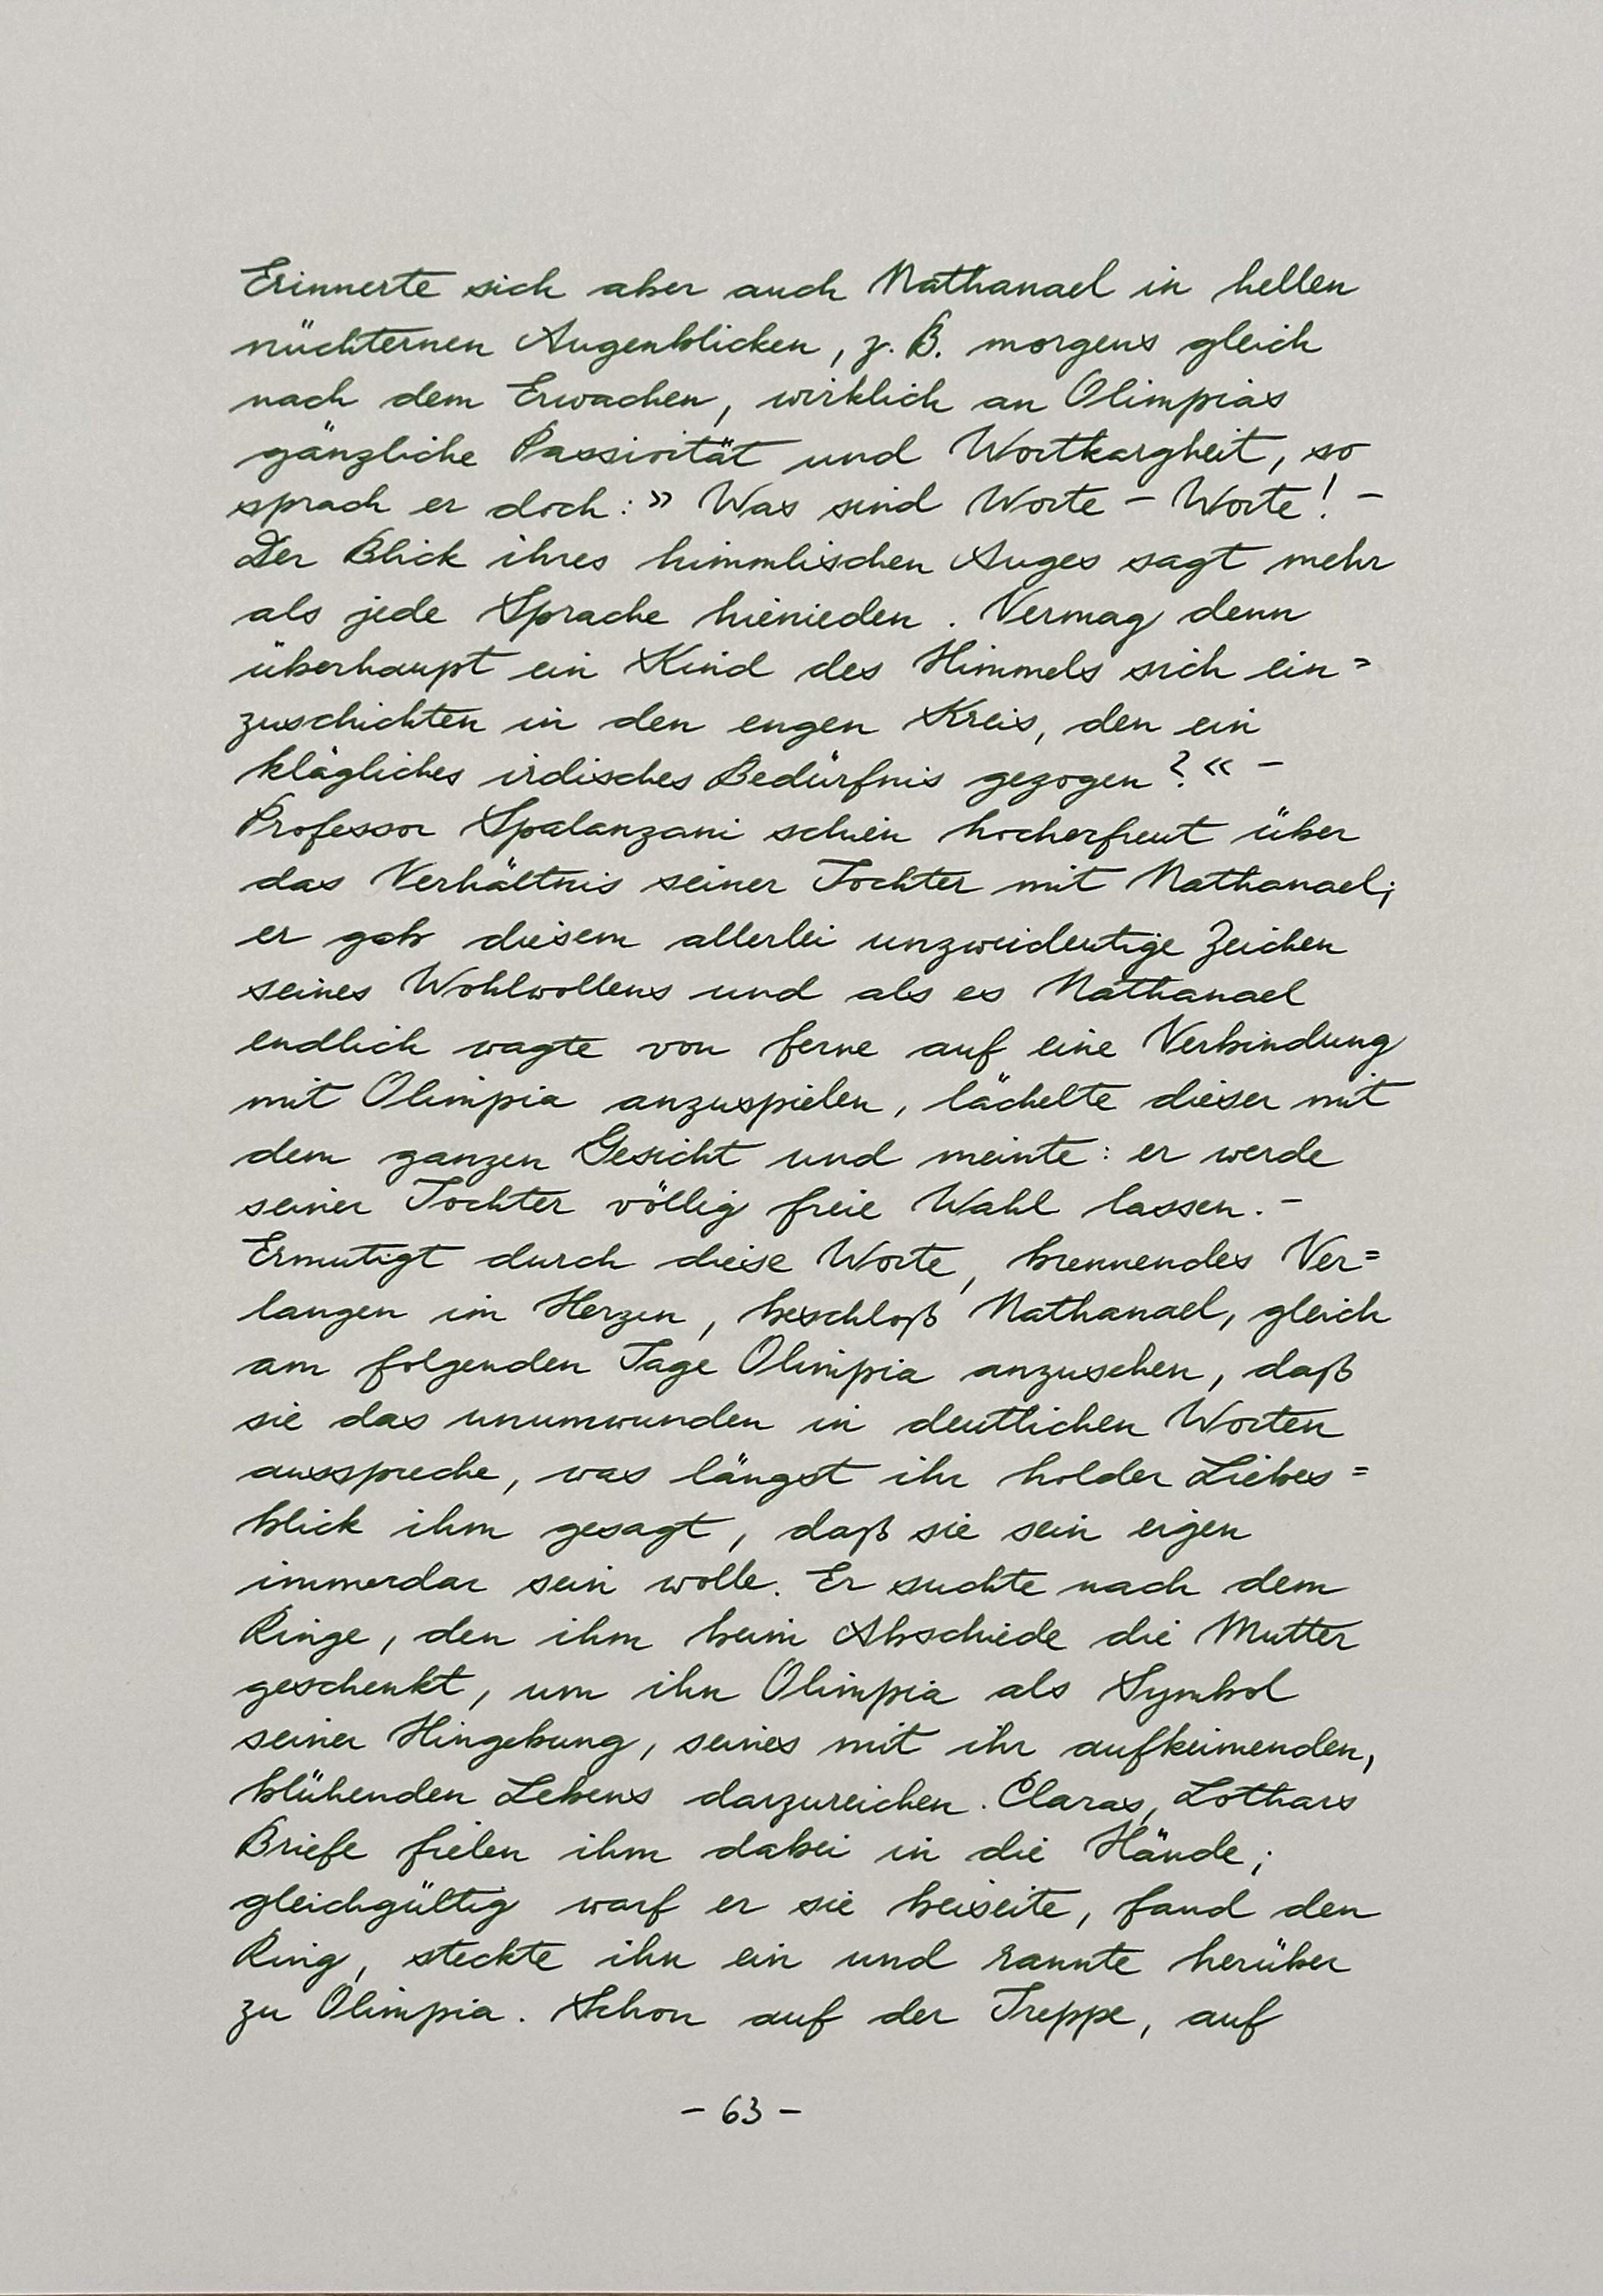 Erinnerte sich aber auch Nathanael in hellen
nüchternen Augenblicken, z. B. morgens gleich
nach dem Erwachen, wirklich an Olimpias
gänzliche Passivität und Wortkargheit, so
sprach er doch: » Was sind Worte – Worte! –
Der Blick ihres himmlischen Auges sagt mehr
als jede Sprache hienieden. Vermag denn
überhaupt ein Kind des Himmels sich ein=
zuschichten in den engen Kreis, den ein
klägliches irdisches Bedürfnis gezogen?« –
Professor Spalanzani schien hocherfreut über
das Verhältnis seiner Tochter mit Nathanael;
er gab diesem allerlei unzweideutige Zeichen
seines Wohlwollens und als es Nathanael
endlich wagte von ferne auf eine Verbindung
mit Olimpia anzuspielen, lächelte dieser mit
dem ganzen Gesicht und meinte: er werde
seiner Tochter völlig freie Wahl lassen. –
Ermutigt durch diese Worte, brennendes Ver=
langen im Herzen, beschloß Nathanael, gleich
am folgenden Tage Olimpia anzusehen, daß
sie das unumwunden in deutlichen Worten
ausspreche, was längst ihr holder Liebes=
blick ihm gesagt, daß sie sein eigen
immerdar sein wolle. Er suchte nach dem
Ringe, den ihm beim Abschiede die Mutter
geschenkt, um ihn Olimpia als Symbol
seiner Hingebung, seines mit ihr aufkeimenden,
blühenden Lebens darzureichen. Claras, Lothars
Briefe fielen ihm dabei in die Hände;
gleichgültig warf er sie beiseite, fand den
Ring, steckte ihn ein und rannte herüber
zu Olimpia. Schon auf der Treppe, auf
– 63 –